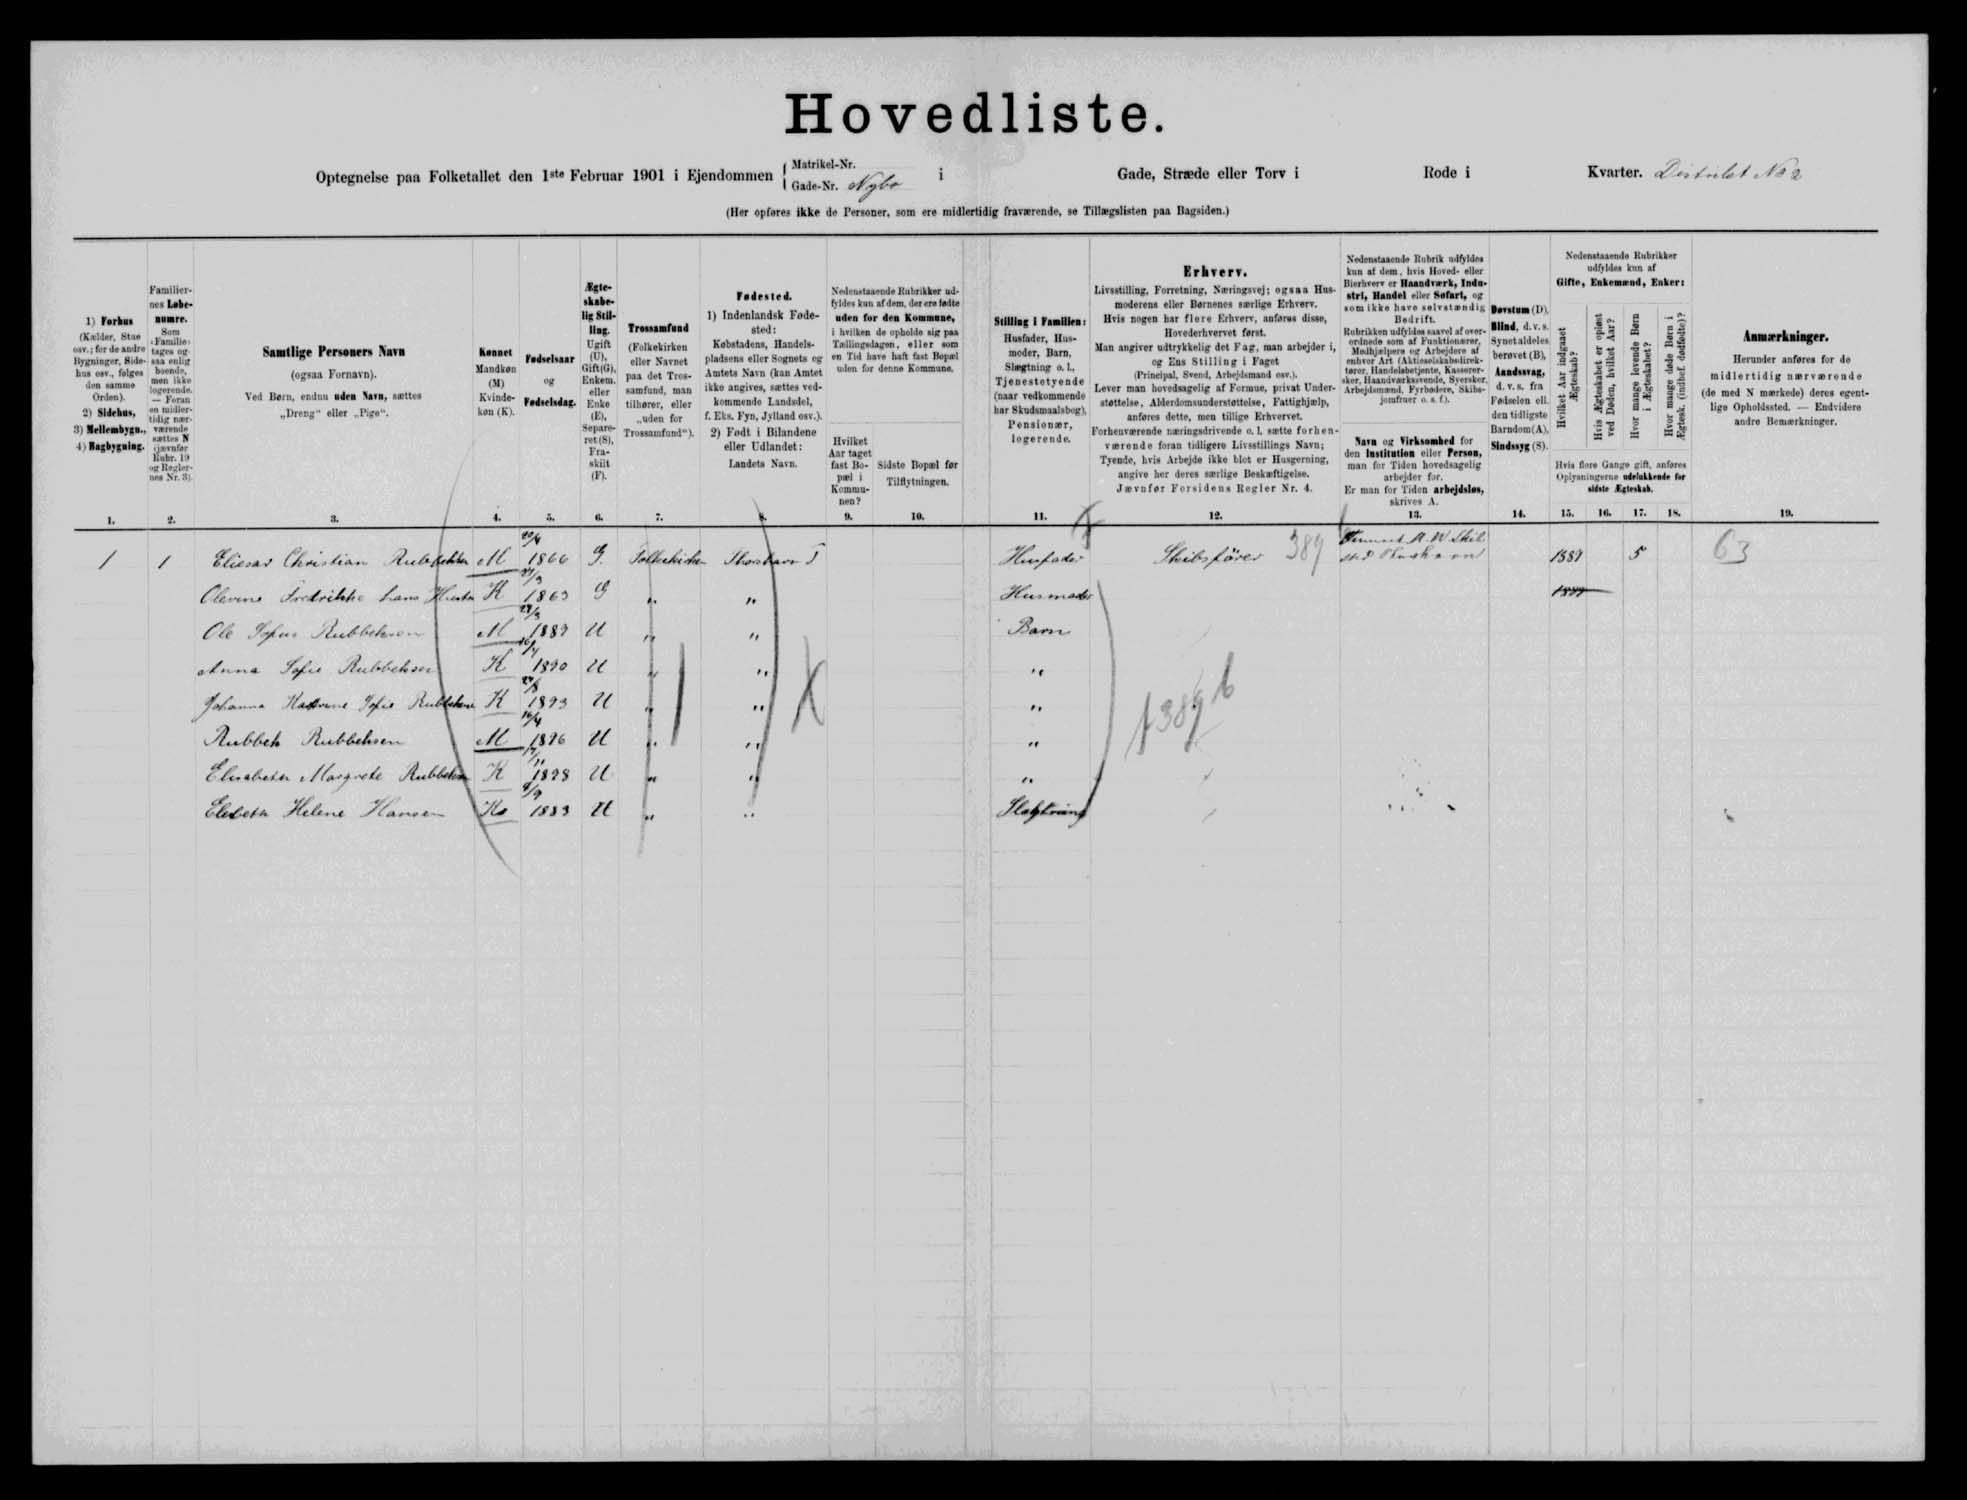 Hovedliste.
Optegnelse paa Folketallet den 1ste Februar 1901 i Ejendommen { Matrikel-Nr. Gade-Nr. Nybo i Gade, Stræde eller Torv i Rode i Kvarter. Distrikt No 2
(Her opføres ikke de Personer, som ere midlertidig fraværende, se Tillægslisten paa Bagsiden.)
1) Forhus
(Kælder, Stue
osv.; for de andre
Bygninger, Side-
hus osv., følges
den samme
Orden).
2) Sidehus,
3) Mellembygn.,
4) Bagbygning.
Familier-
nes Løbe-
numre.
Som
„Familie“
tages og-
saa enlig
boende,
men ikke
logerende.
— Foran
en midler-
tidig nær-
værende
sættes N
(jævnfør
Rubr. 19
og Regler-
nes Nr. 3).
Samtlige Personers Navn
(ogsaa Fornavn).
Ved Børn, endnu uden Navn, sættes
„Dreng“ eller „Pige“.
Kønnet
Mandkøn
(M)
Kvinde-
køn (K).
Fødselsaar
og
Fødselsdag.
Ægte-
skabe-
lig Stil-
ling.
Ugift
(U),
Gift(G),
Enkem.
eller
Enke
(E),
Separe-
ret (S),
Fra-
skilt
(F).
Trossamfund
(Folkekirken
eller Navnet
paa det Tros-
samfund, man
tilhører, eller
„uden for
Trossamfund“).
Fødested.
1) Indenlandsk Føde-
sted:
Købstadens, Handels-
pladsens eller Sognets og
Amtets Navn (kan Amtet
ikke angives, sættes ved-
kommende Landsdel,
f. Eks. Fyn, Jylland osv.).
2) Født i Bilandene
eller Udlandet:
Landets Navn.
Nedenstaaende Rubrikker ud-
fyldes kun af dem, der ere fødte
uden for den Kommune,
i hvilken de opholde sig paa
Tællingsdagen, eller som
en Tid have haft fast Bopæl
uden for denne Kommune.
Hvilket
Aar taget
fast Bo-
pæl i
Kommu-
nen?
Sidste Bopæl før
Tilflytningen.
Stilling i Familien:
Husfader, Hus-
moder, Barn,
Slægtning o. l.,
Tjenestetyende
(naar vedkommende
har Skudsmaalsbog),
Pensionær,
logerende.
Erhverv.
Livsstilling, Forretning, Næringsvej; ogsaa Hus-
moderens eller Børnenes særlige Erhverv.
Hvis nogen har flere Erhverv, anføres disse,
Hovederhvervet først.
Man angiver udtrykkelig det Fag, man arbejder i,
og Ens Stilling i Faget
(Principal, Svend, Arbejdsmand osv.).
Lever man hovedsagelig af Formue, privat Under-
støttelse, Alderdomsunderstøttelse, Fattighjælp,
anføres dette, men tillige Erhvervet.
Forhenværende næringsdrivende o. l. sætte forhen-
værende foran tidligere Livsstillings Navn;
Tyende, hvis Arbejde ikke blot er Husgerning,
angive her deres særlige Beskæftigelse.
Jævnfør Forsidens Regler Nr. 4.
Nedenstaaende Rubrik udfyldes
kun af dem, hvis Hoved- eller
Bierhverv er Haandværk, Indu-
stri, Handel eller Søfart, og
som ikke have selvstændig
Bedrift.
Rubrikken udfyldes saavel af over-
ordnede som af Funktionærer,
Medhjælpere og Arbejdere af
enhver Art (Aktieselskabsdirek-
tører, Handelsbetjente, Kasserer-
sker, Haandværkssvende, Syersker,
Arbejdsmænd, Fyrbødere, Skibs-
jomfruer o. s. f.).
Navn og Virksomhed for
den Institution eller Person,
man for Tiden hovedsagelig
arbejder for.
Er man for Tiden arbejdsløs,
skrives A.
Døvstum (D),
Blind, d. v. s.
Synet aldeles
berøvet (B),
Aandssvag,
d. v. s. fra
Fødselen ell.
den tidligste
Barndom (A),
Sindssyg (S).
Nedenstaaende Rubrikker
udfyldes kun af
Gifte, Enkemænd, Enker:
Hvilket Aar indgaaet
Ægteskab?
Hvis Ægteskabet er opløst
ved Døden, hvilket Aar?
Hvor mange levende Børn
i Ægteskabet?
Hvor mange døde Børn i
Ægtesk. (indbef. dødfødte)?
Hvis flere Gange gift, anføres
Oplysningerne udelukkende for
sidste Ægteskab.
Anmærkninger.
Herunder anføres for de
midlertidig nærværende
(de med N mærkede) deres egent-
lige Opholdssted. — Endvidere
andre Bemærkninger.
1. 2. 3. 4. 5. 6. 7. 8. 9. 10. 11. 12. 13. 14. 15. 16. 17. 18. 19.
1 1 Eliesar Christian Rubbeksen M 20/4 1866 G. Folkekirken Thorshavn F Husfader Skibsfører 389 1889 5 63
Olevine Fredrikke K 1863 G „ „ Husmoder
Ole Sofus Rubbeksen M 1889 U „ „ Barn
Anna Sofie Rubbeksen K 1890 U „ „ „
Johanna Katrine Sofie Rubbeksen K 1893 U „ „ „
1389 b
Rubbek Rubbeksen M 16/4 1896 U „ „ „
Elisabeth Margrete Rubbeksen K 1898 U „ „ „
Elsebeth Helene Hansen K 1883 U „ „ Slægtning